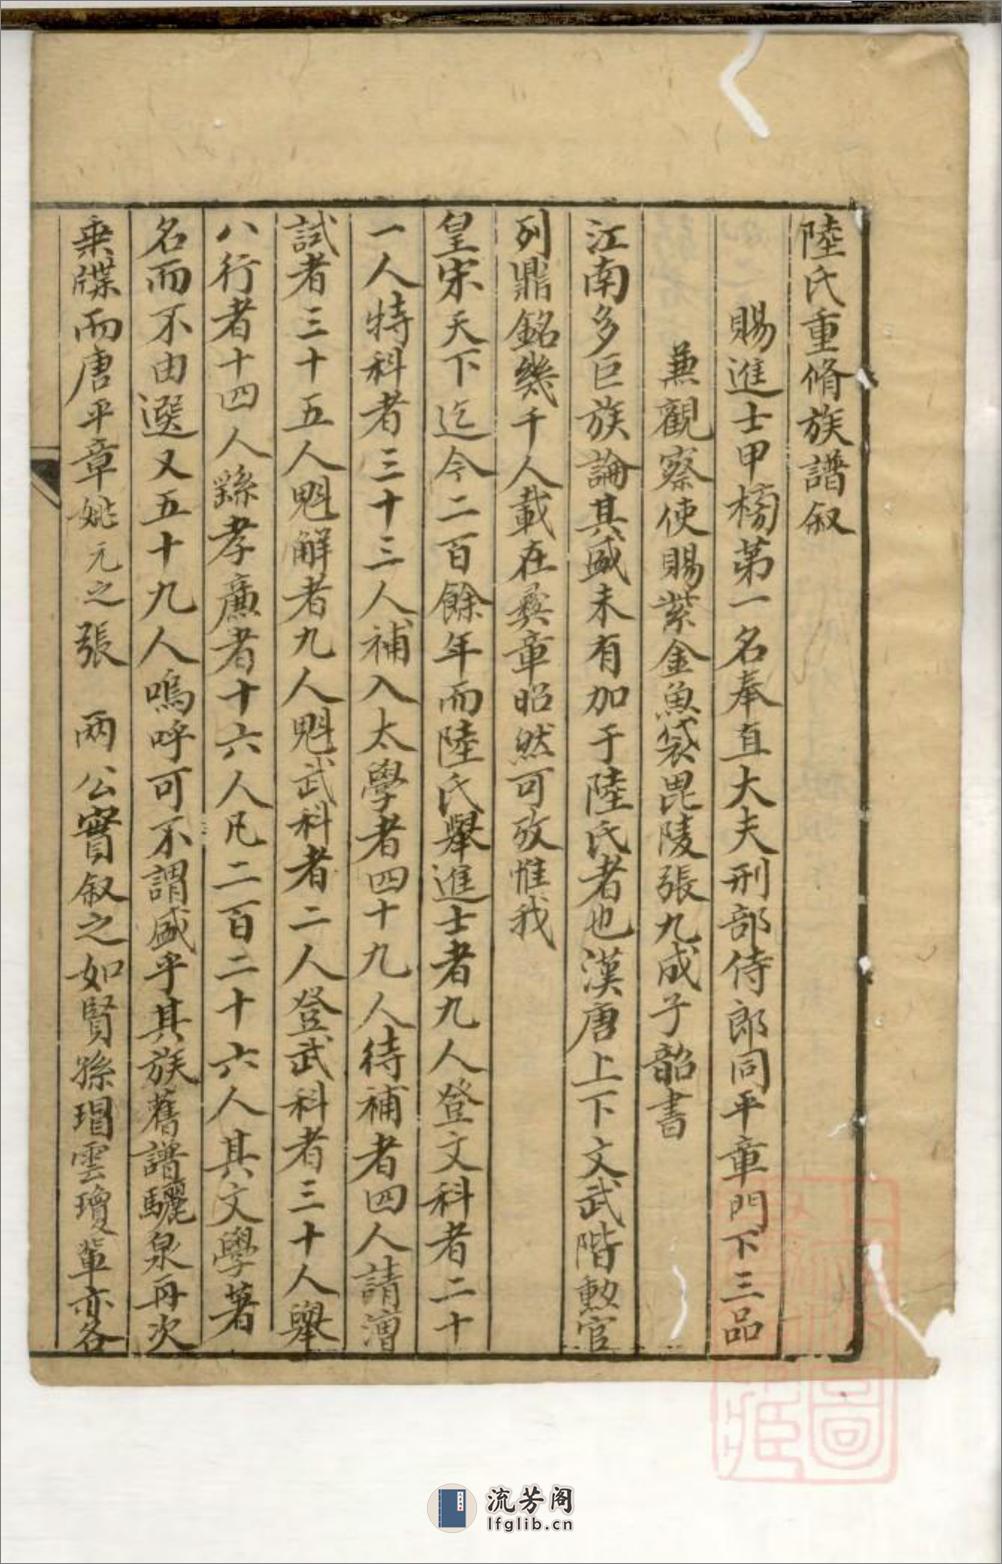 陸氏重脩族譜叙
賜進士甲榜第一名奉直大夫刑部侍郎同平章門下三品
兼觀察使賜紫金魚袋毘陵張九成子韶書
江南多巨族論其盛未有加于陸氏者也漢唐上下文武階勲官
列鼎銘幾千人載在彝章昭然可攷惟我
皇宋天下迄今二百餘年而陸氏舉進士者九人登文科者二十
一人特科者三十三人補入太學者四十九人待補者四人請漕
試者三十五人魁解者九人魁武科者二人登武科者三十人舉
八行者十四人繇孝廉者十六人凡二百二十六人其文學著
名而不由選又五十九人嗚呼可不謂盛乎其族舊譜驪泉再次
乘牒而唐平章姚元之張 兩公實叙之如賢孫瑁雲瓊輩亦各
流芳阁
lfglib.cn